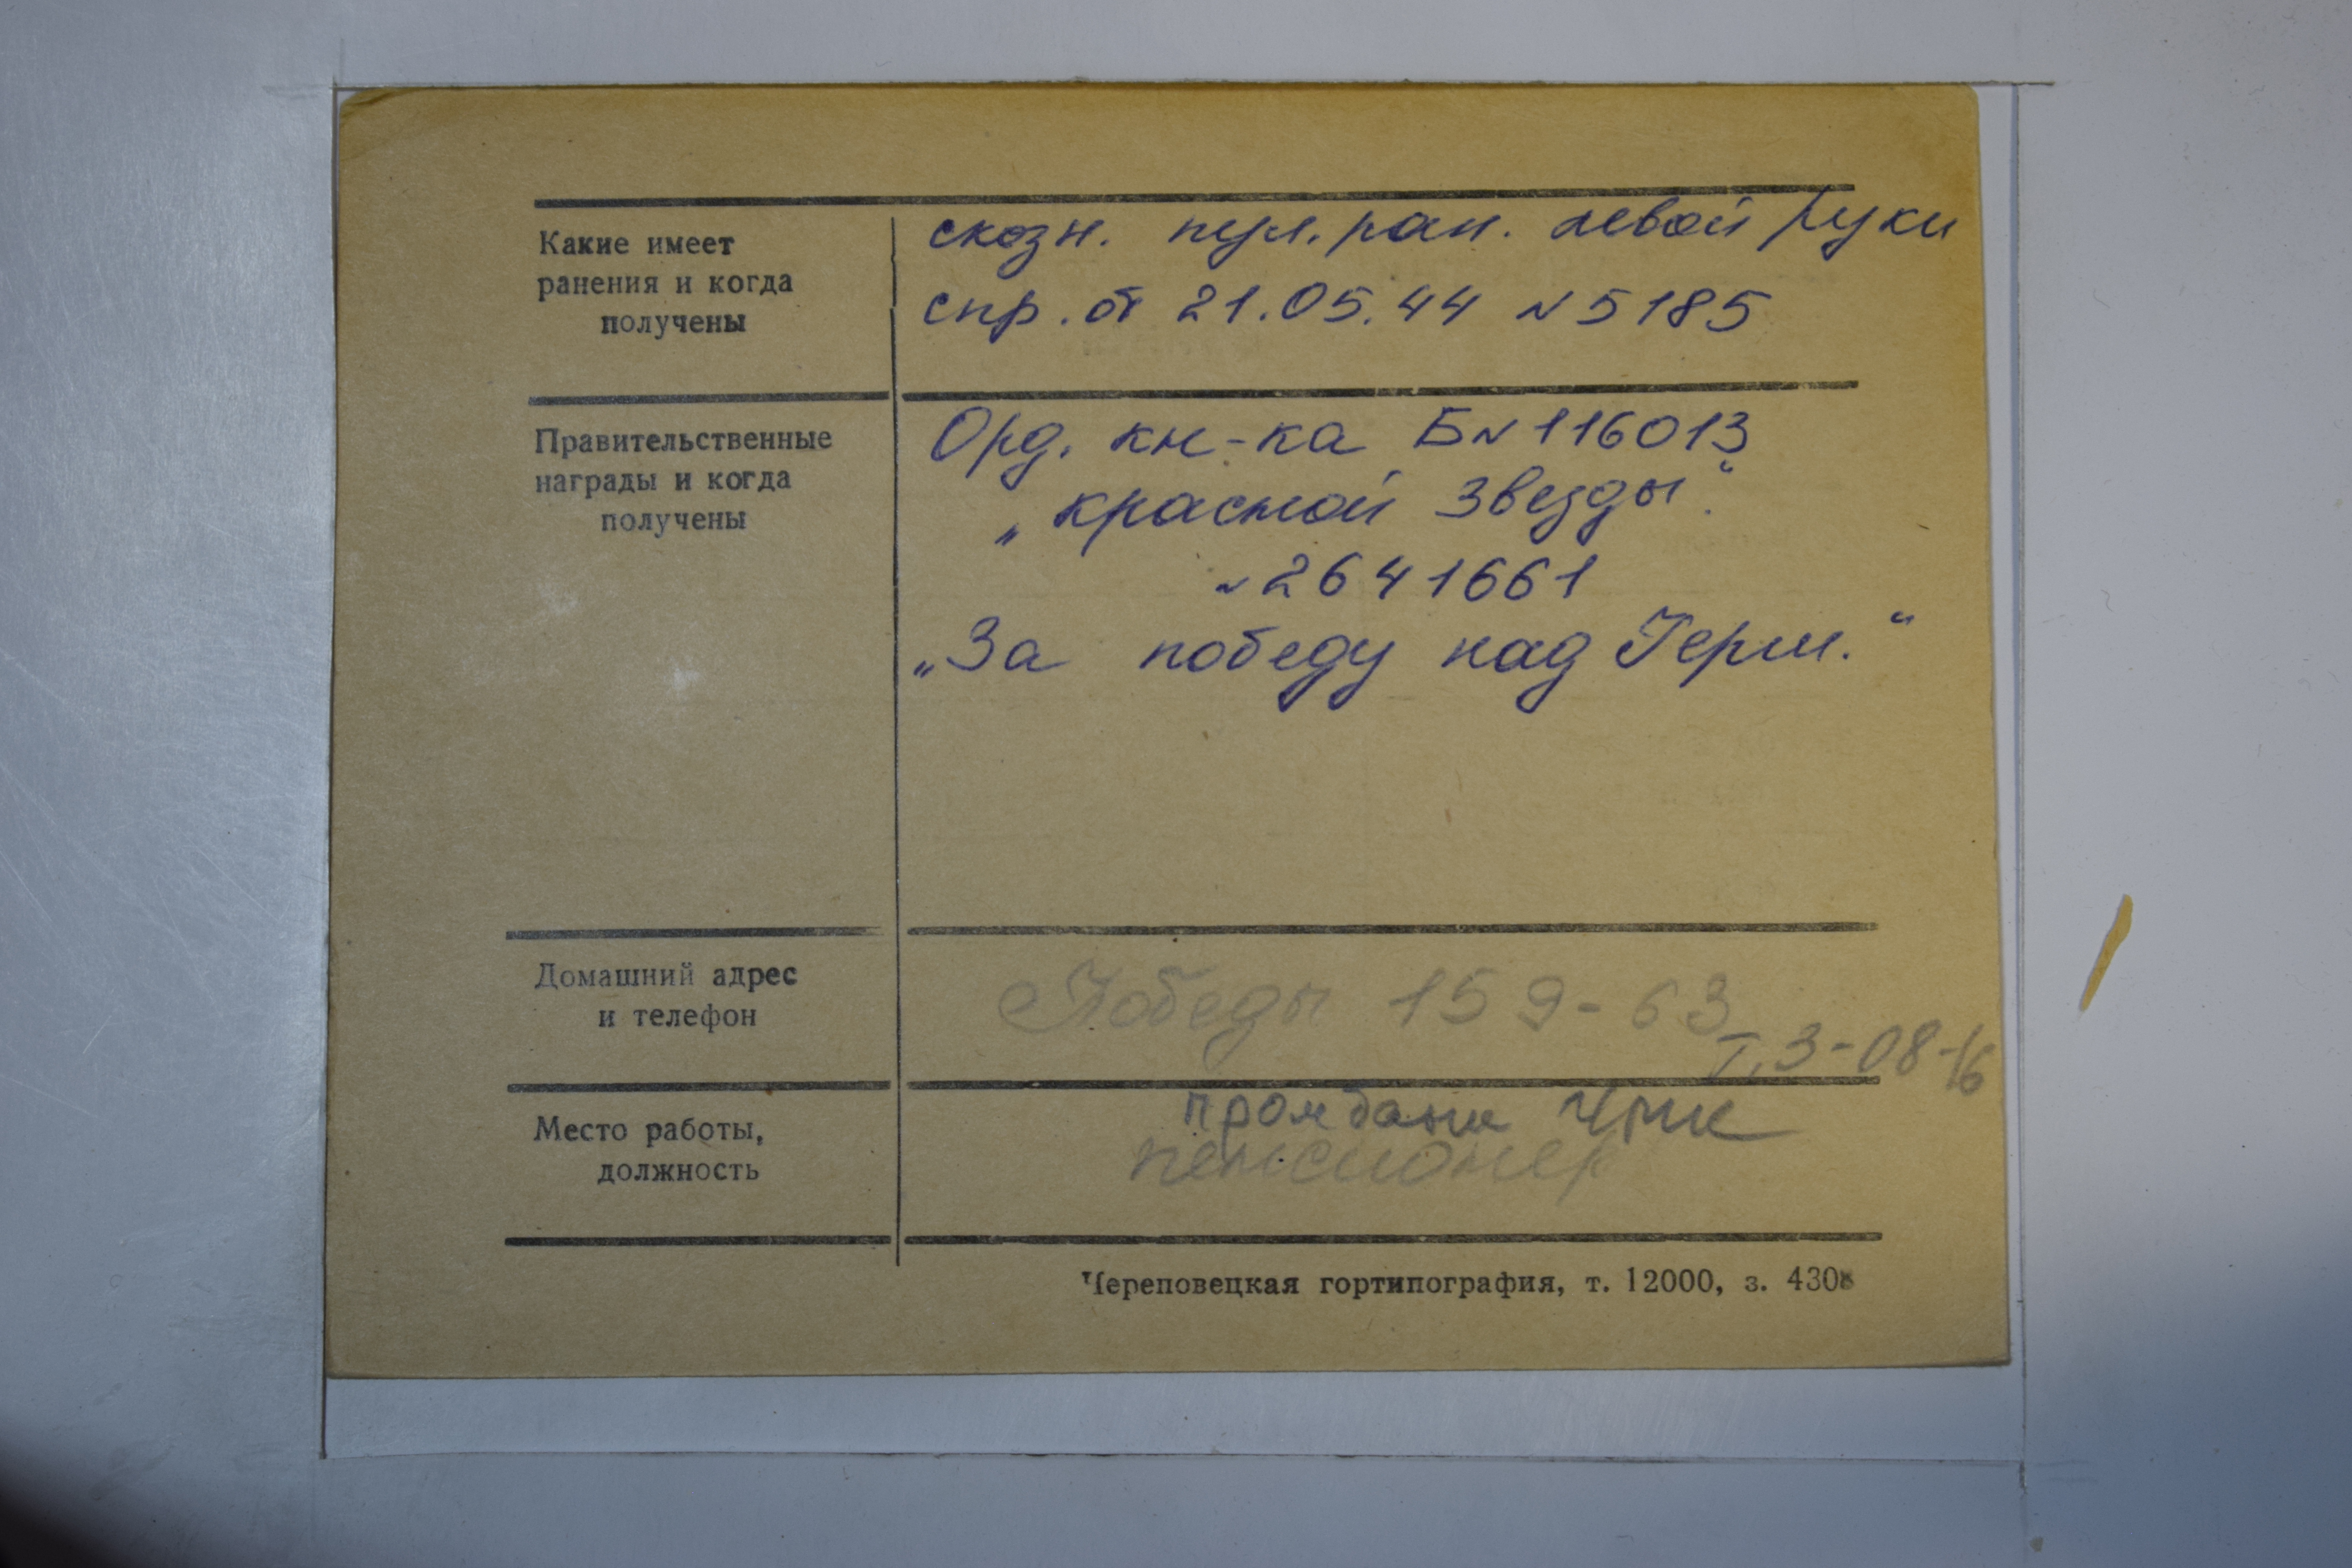 Какие имеет
ранения и когда
получены
скозн. пул. ран. левой руки
спр. от 21.05.44 N 5185
Правительственные
награды и когда
получены
Орд. кн-ка Б N 116013
„красной Звезды“.
N 2641661
„За победу над Герм.“
Домашний адрес
и телефон
Победы 159-63
Т. 3-08-16
Место работы,
должность
ЧМК
пенсионер
Череповецкая гортипография, т. 12000, з. 4308